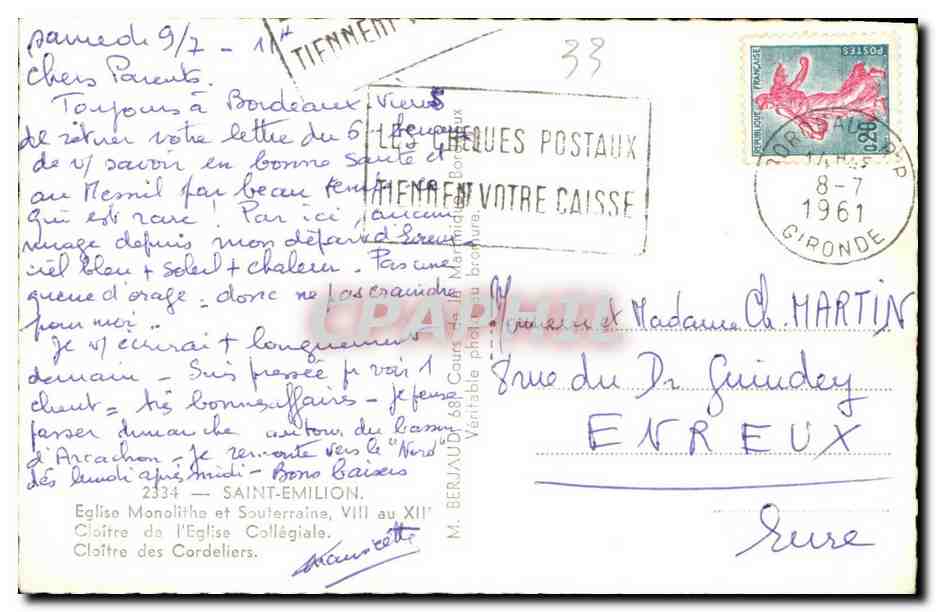 samedi 9/7 - 11H
Chers Parents.
Toujours à Bordeaux. Viens
de retirer votre lettre du 6 - heureuse
de v/ savoir en bonne santé et
au Mesnil par beau temps ce
qui est rare ! Par ici, aucun
nuage depuis mon départ d'Evreux
ciel bleu + soleil + chaleur. Pas une
queue d'orage - donc ne pas craindre
pour moi.
Je v/ écrirai + longuement
demain - Suis pressée pr voir 1
client = très bonnes affaires - je pense
passer dimanche autour du bassin
d'Arcachon - je remonte vers le "Nord"
dès lundi après midi - Bons baisers
2334 — SAINT-EMILION.
Eglise Monolithe et Souterraine, VIII au XIIe
Cloître de l'Eglise Collégiale.
Cloître des Cordeliers.
M. BERJAUD, 68, Cours de la Martinique, Bordeaux
Véritable photo au bromure.
TIENNENT
33
LES CHEQUES POSTAUX
TIENNENT VOTRE CAISSE
REPUBLIQUE FRANÇAISE
POSTES
0,20
BORDEAUX RP
14H45
8-7
1961
GIRONDE
CPAPHIL
Monsieur et Madame Ch. MARTIN
8 rue du Dr Guindey
EVREUX
Eure